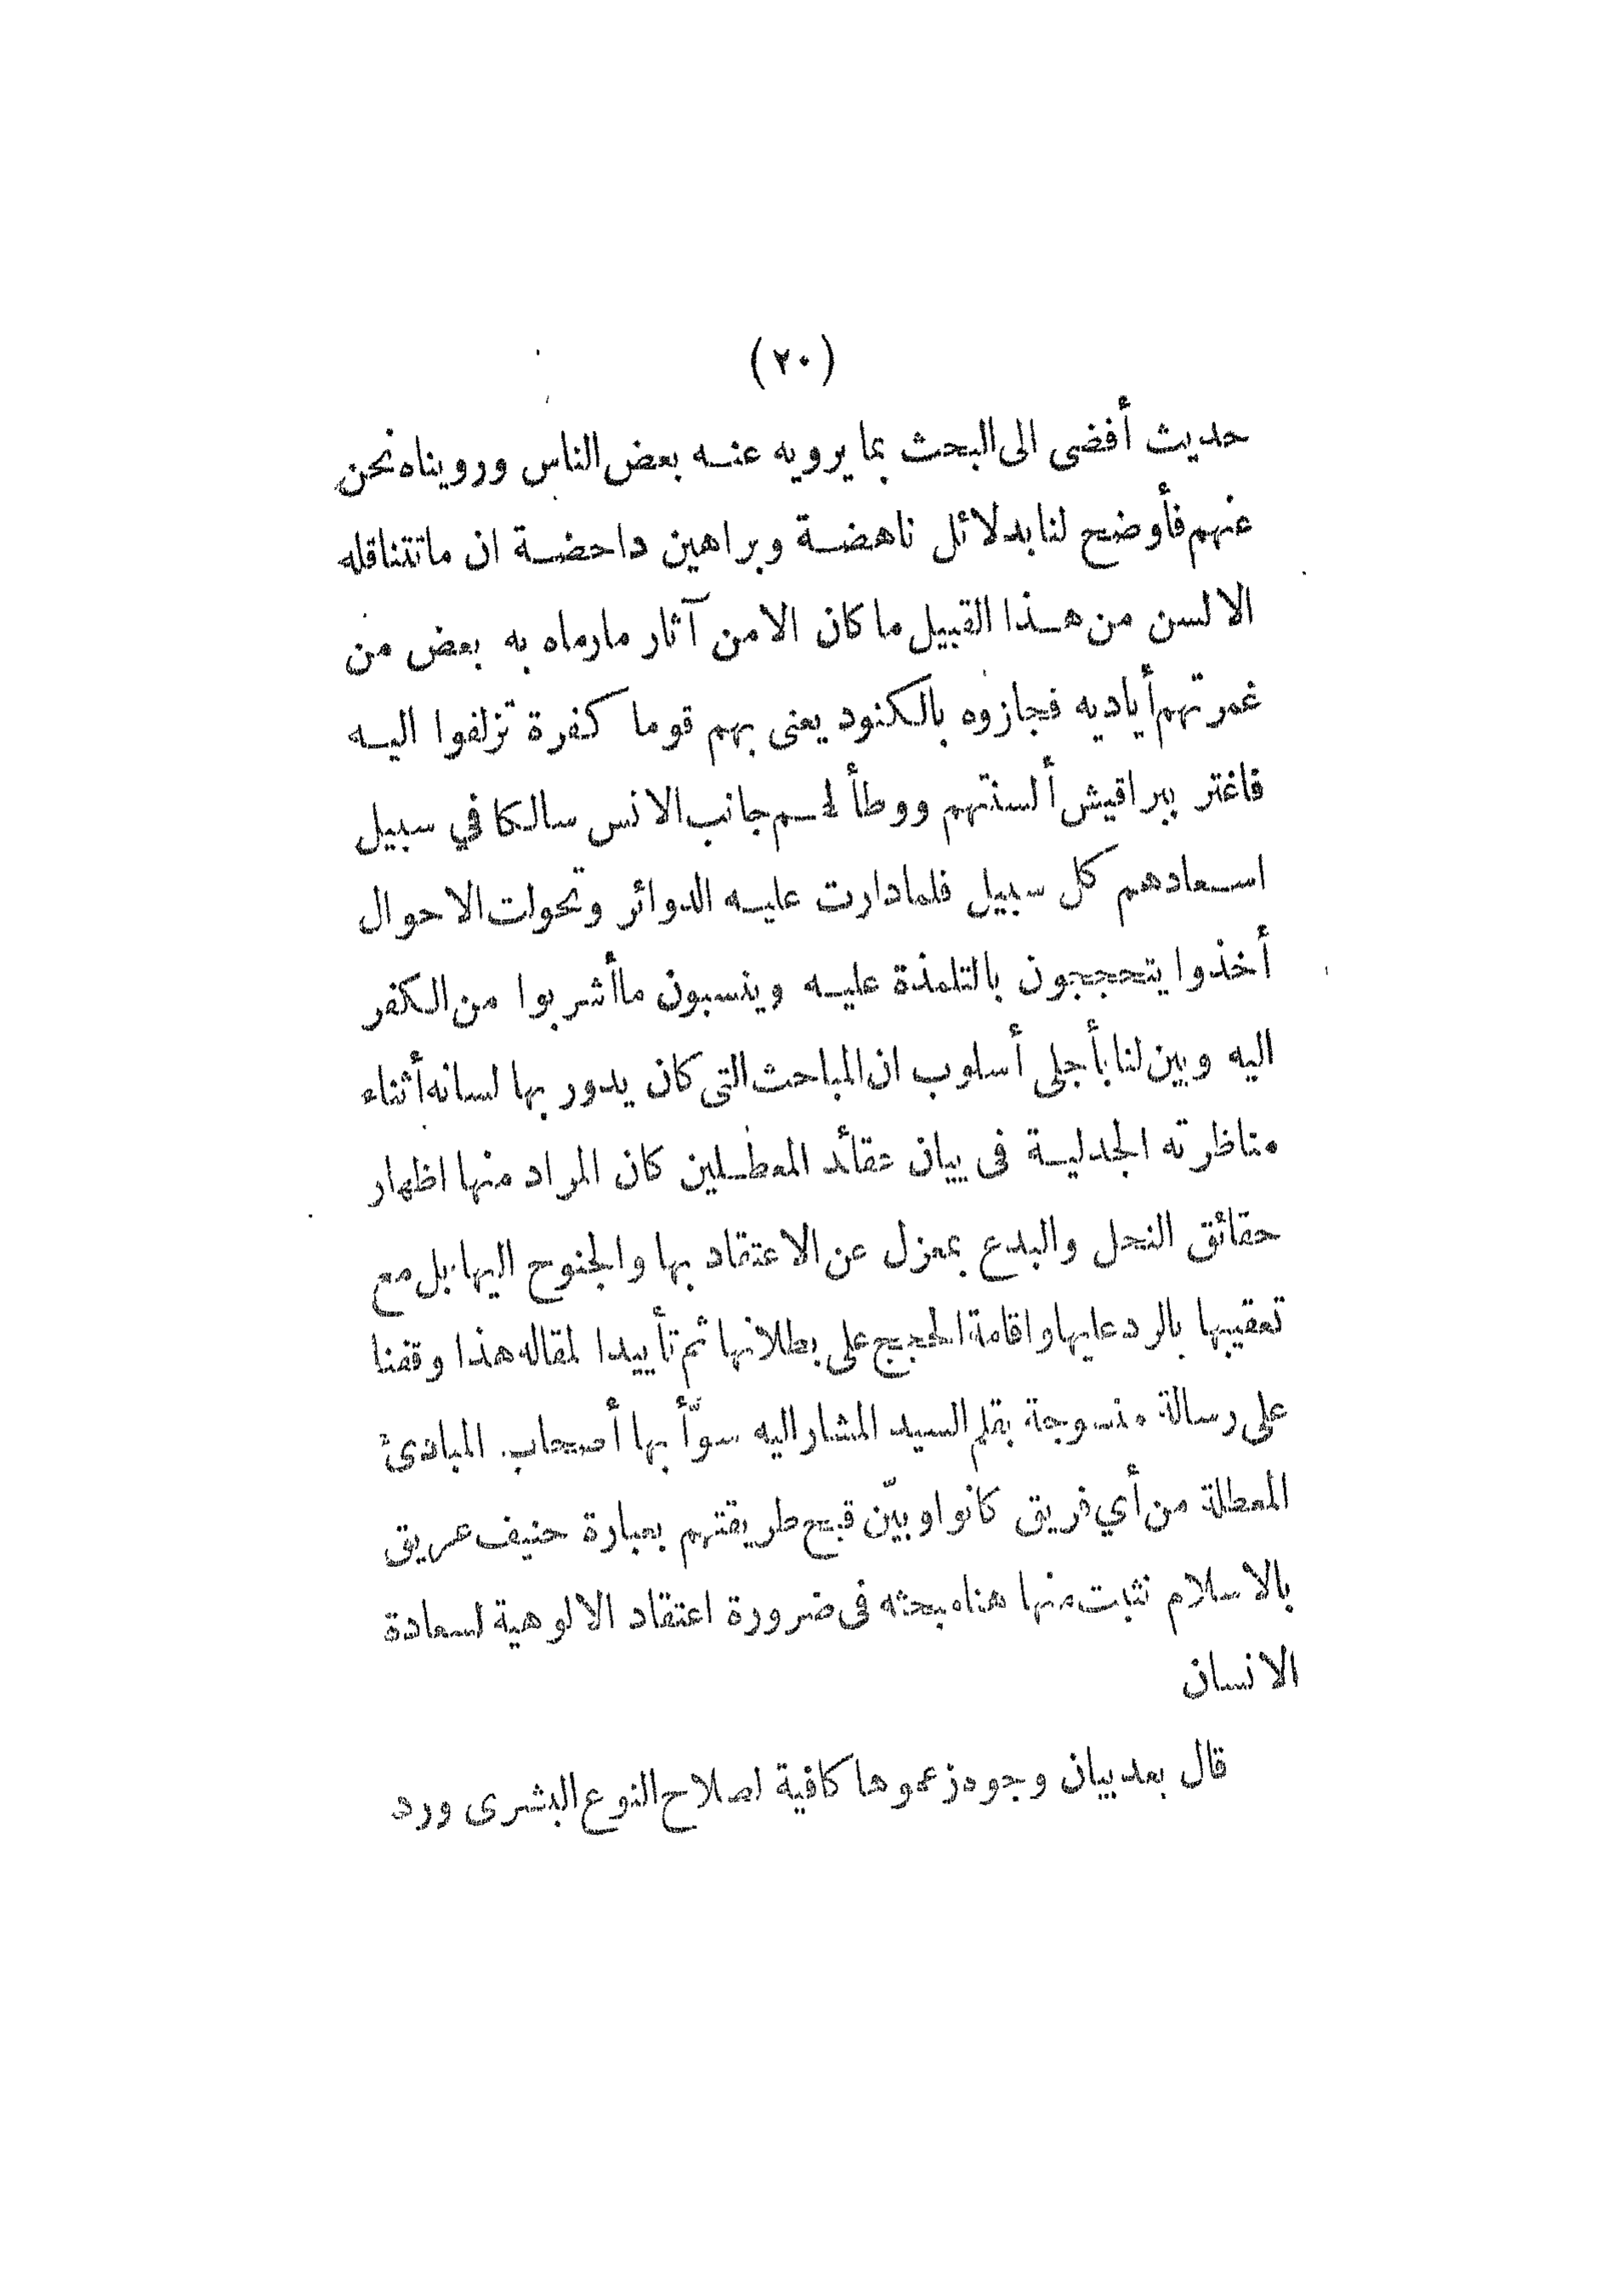 (٢٠)
حديث أفضى الى البحث بما يرويه عنه بعض الناس ورويناه نحن
عنهم فأوضح لنا بدلائل ناهضة وبراهين داحضة ان ما تتناقله
الالسن من هذا القبيل ما كان الا من آثار مارماه به بعض من
غمرتهم أياديه فجازوه بالكنود يعنى بهم قوما كفرة تزلفوا اليه
فاغتر ببراقيش ألسنتهم ووطأ لهم جانب الانس سالكا في سبيل
اسعادهم كل سبيل فلما دارت عليه الدوائر وتحولت الاحوال
أخذوا يتحججون بالتلمذة عليه وينسبون ما أشربوا من الكفر
اليه وبين لنا بأجلى أسلوب ان المباحث التى كان يدور بها لسانه أثناء
مناظرته الجدلية فى بيان عقائد المعطلين كان المراد منها اظهار
حقائق النحل والبدع بمعزل عن الاعتقاد بها والجنوح اليها بل مع
تعقيبها بالرد عليها واقامة الحجج على بطلانها ثم تأييدا لمقاله هذا وقفنا
على رسالة منسوجة بقلم السيد المشار اليه سوّأ بها أصحاب المبادئ
المعطلة من أي فريق كانوا وبيّن قبح طريقتهم بعبارة حنيف عريق
بالاسلام نثبت منها هنا مبحثه فى ضرورة اعتقاد الالوهية لسعادة
الانسان
قال بعد بيان وجوه زعموها كافية لصلاح النوع البشرى ورد